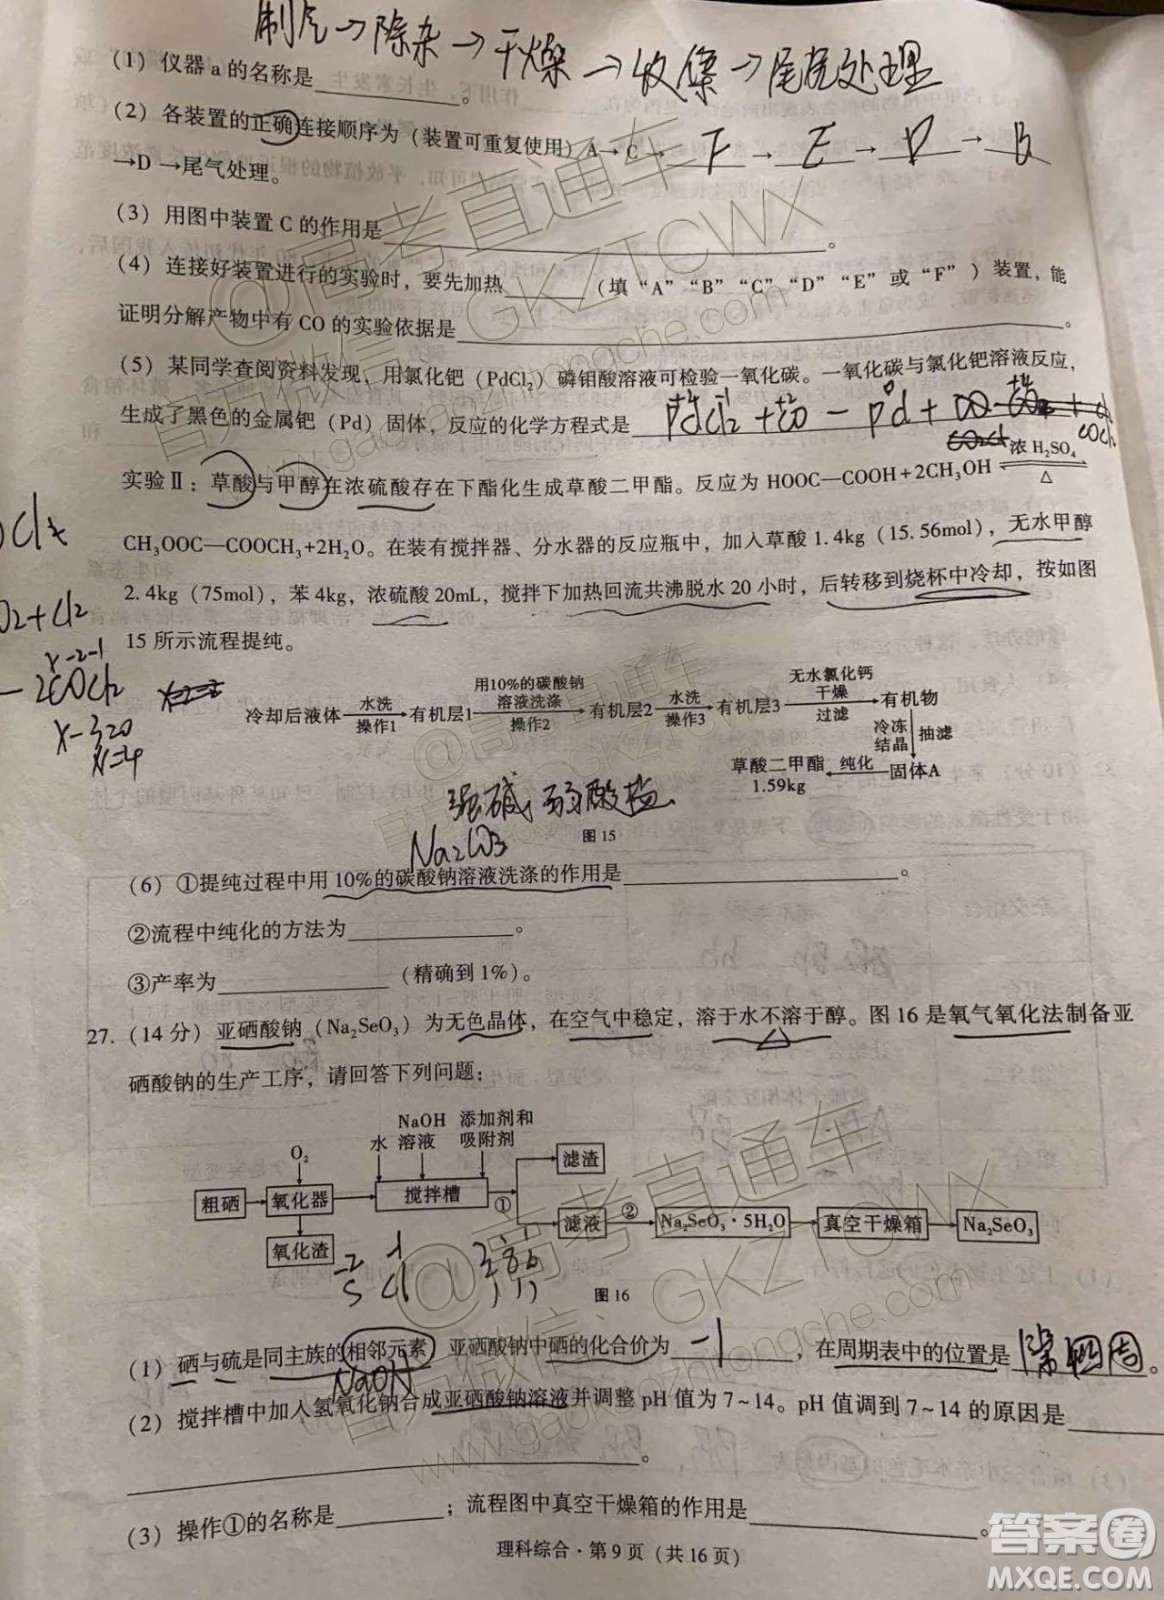 制气→除杂→干燥→收集→尾气处理
(1) 仪器 a 的名称是________。
(2) 各装置的正确连接顺序为（装置可重复使用）A→C→ F → E → D → B
→D→尾气处理。
(3) 用图中装置 C 的作用是________。
(4) 连接好装置进行的实验时，要先加热______（填“A”“B”“C”“D”“E”或“F”）装置，能
证明分解产物中有 CO 的实验依据是________。
(5) 某同学查阅资料发现，用氯化钯（PdCl₂）磷钼酸溶液可检验一氧化碳。一氧化碳与氯化钯溶液反应，
生成了黑色的金属钯（Pd）固体，反应的化学方程式是
COCl₂
实验Ⅱ：草酸与甲醇在浓硫酸存在下酯化生成草酸二甲酯。反应为 HOOC—COOH+2CH₃OH 浓 H₂SO₄ △
CH₃OOC—COOCH₃+2H₂O。在装有搅拌器、分水器的反应瓶中，加入草酸 1.4kg（15.56mol），无水甲醇
2.4kg（75mol），苯 4kg，浓硫酸 20mL，搅拌下加热回流共沸脱水 20 小时，后转移到烧杯中冷却，按如图
15 所示流程提纯。
冷却后液体 水洗 操作1 有机层1 用10%的碳酸钠溶液洗涤 操作2 有机层2 水洗 操作3 有机层3 无水氯化钙 干燥 过滤 有机物
冷冻 结晶 抽滤
草酸二甲酯 1.59kg 纯化 固体A
强碱弱酸盐
图 15
Na₂CO₃
(6) ①提纯过程中用 10%的碳酸钠溶液洗涤的作用是________。
②流程中纯化的方法为________。
③产率为________（精确到 1%）。
27. (14 分) 亚硒酸钠（Na₂SeO₃）为无色晶体，在空气中稳定，溶于水不溶于醇。图 16 是氧气氧化法制备亚
硒酸钠的生产工序，请回答下列问题：
O₂ 水 NaOH 溶液 添加剂和吸附剂
粗硒 氧化器 搅拌槽 ① 滤渣
氧化渣 滤液 ② Na₂SeO₃·5H₂O 真空干燥箱 Na₂SeO₃
-2 -1
S Cl
图 16
(1) 硒与硫是同主族的相邻元素，亚硒酸钠中硒的化合价为 -1 ，在周期表中的位置是 第四周。
NaOH
(2) 搅拌槽中加入氢氧化钠合成亚硒酸钠溶液并调整 pH 值为 7~14。pH 值调到 7~14 的原因是______
________。
(3) 操作①的名称是________；流程图中真空干燥箱的作用是________。
理科综合·第 9 页（共 16 页）
@高考直通车
官方微信：GKZTCWX
www.gaokzhitongche.com
答案圈
MXQE.COM